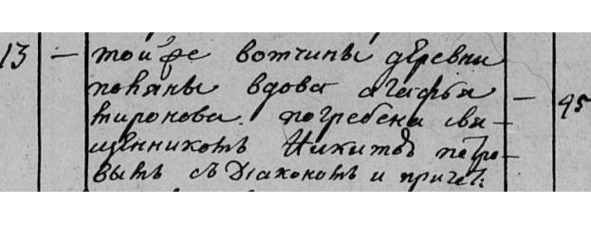 13 — той же вотчины деревни
поляны вдова агафья
миронова. погребена свя — 45
щенникомъ Никитою петро
вымъ съ Діакономъ и причет: